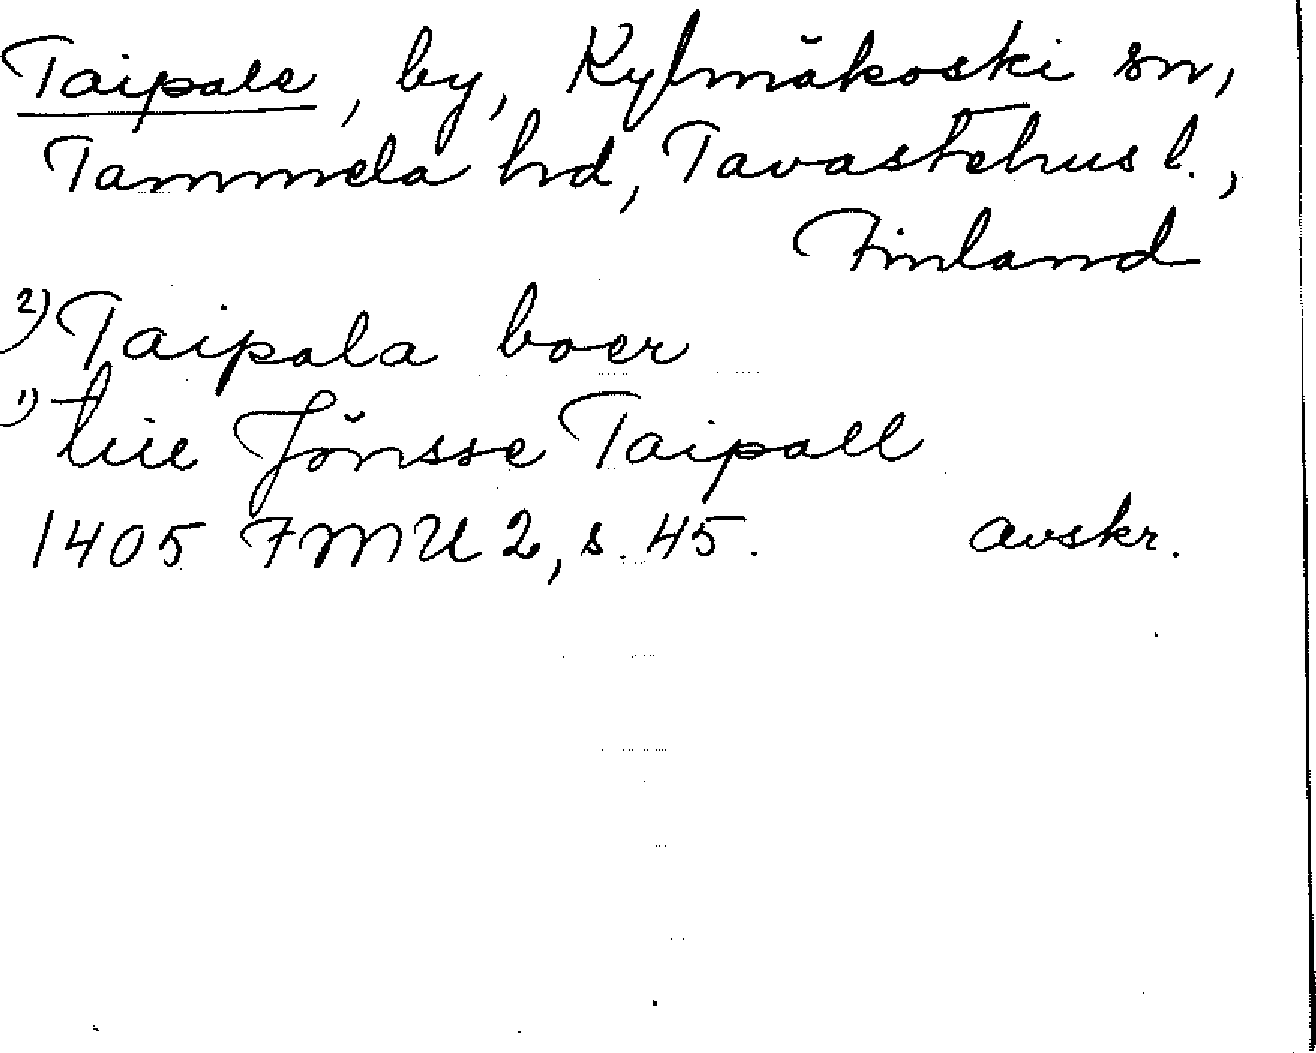 Taipale, by, Kylmäkoski sn,
Tammela hd, Tavastehus l.,
Finland
2) Taipala boer
1) tiie Jönsse Taipall
1405 FMU 2, s. 45. avskr.